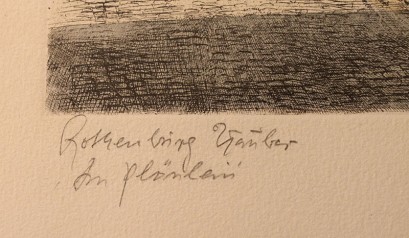 Rothenburg Tauber
Im Plönlein